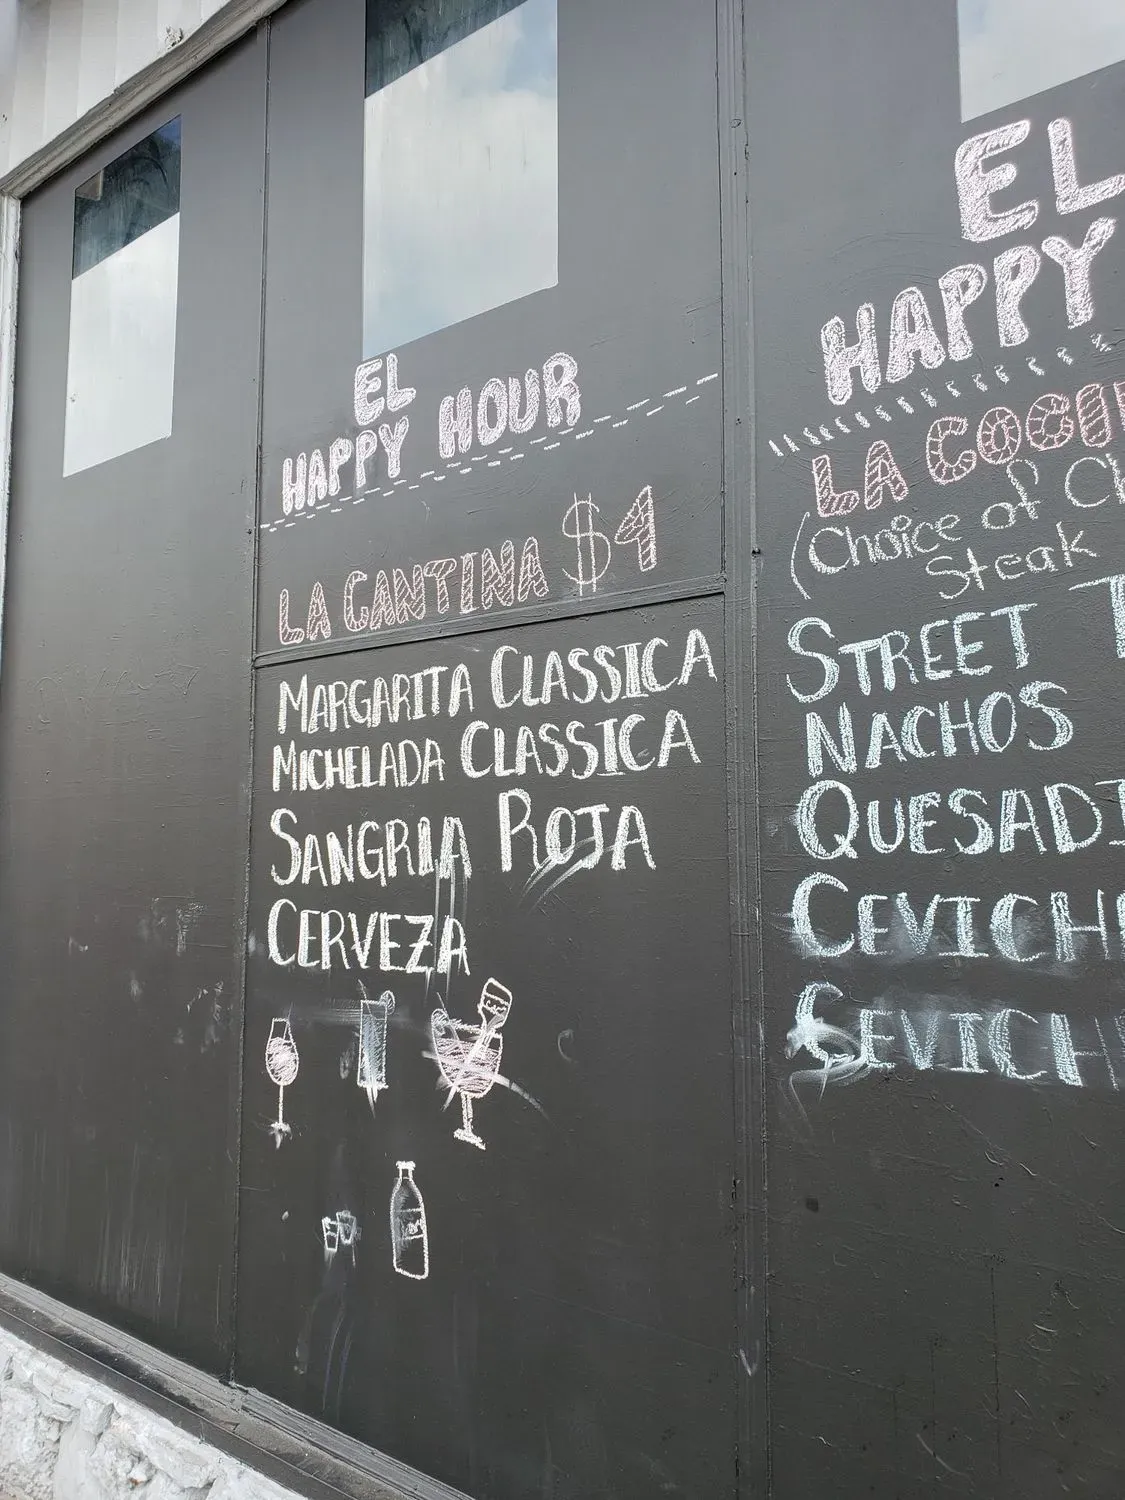 EL
HAPPY HOUR
LA CANTINA $4
MARGARITA CLASSICA
MICHELADA CLASSICA
SANGRIA ROJA
CERVEZA
EL
HAPPY
LA
(Choice of
Steak
STREET
NACHOS